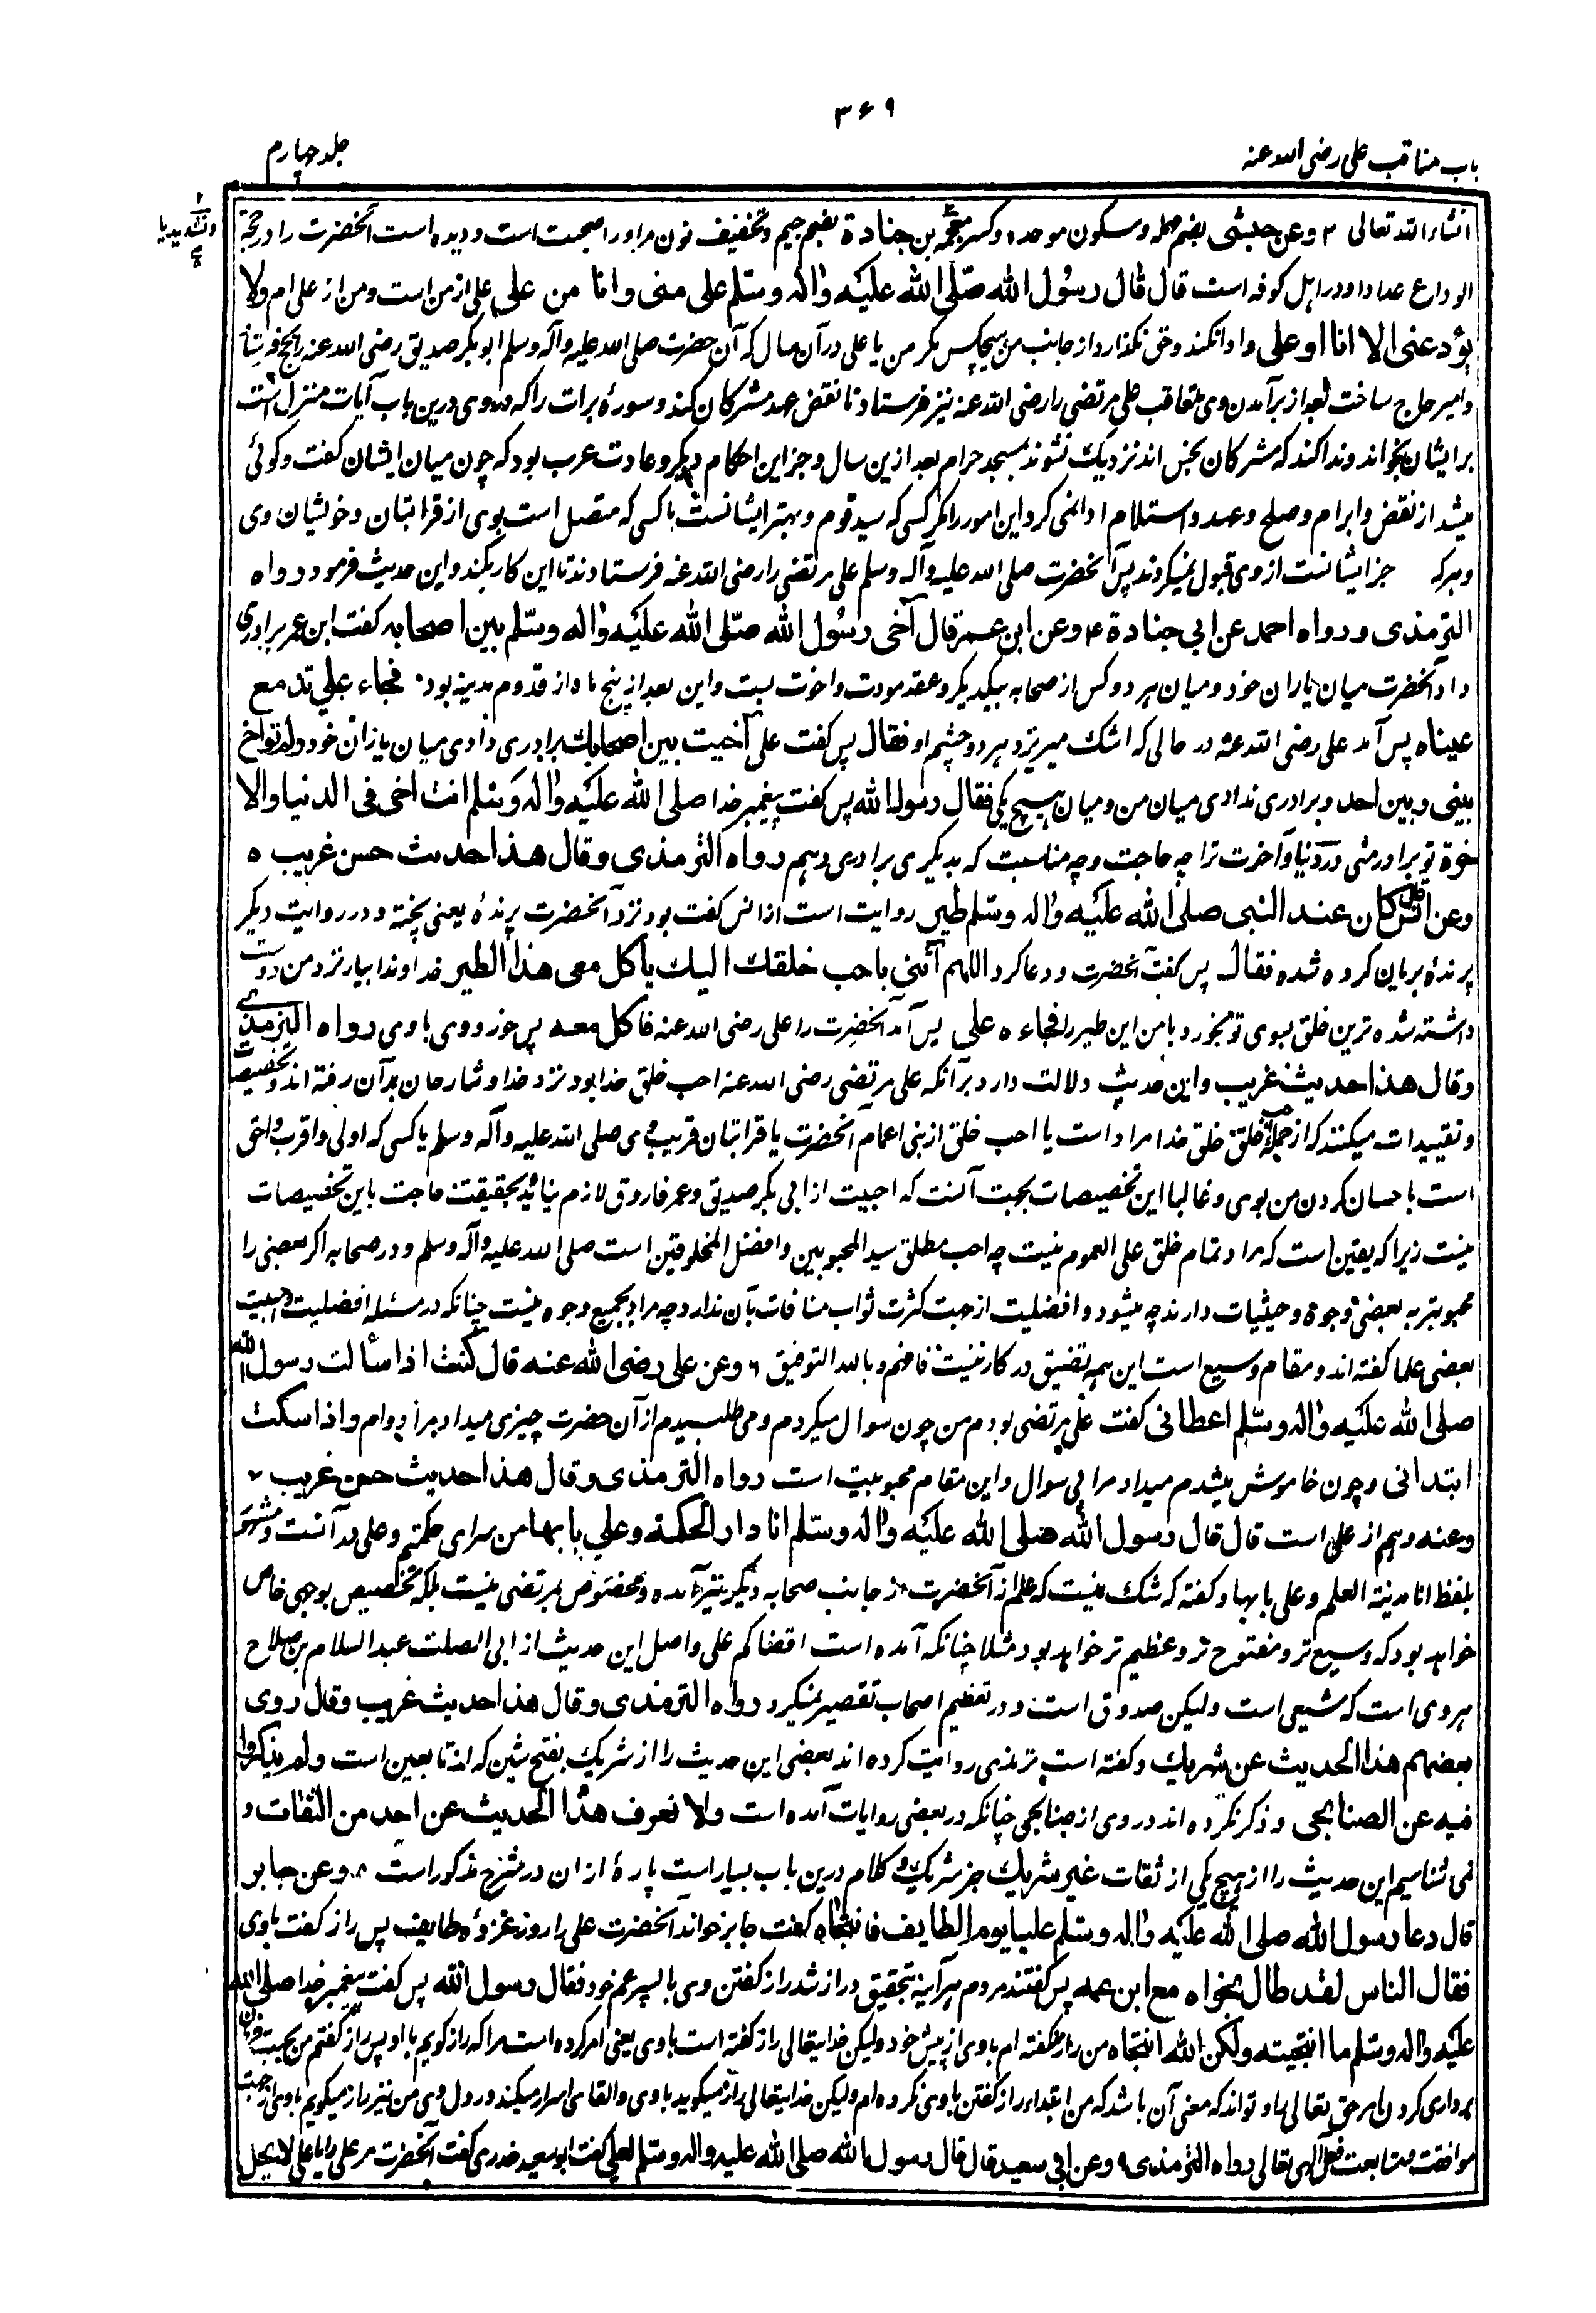 ۳۶۹
باب مناقب علی رضی الله عنه
جلد چهارم
انشاء الله تعالی ۳ وعن حبشی بضم مهمله وسکون موحده وکسر معجمه بن جنادة بضم جیم وتخفیف نون مر اورا صحبت است ودیده است آنحضرت را در حجة
وتشدید یا
الوداع عداد او در اهل کوفه است قال قال رسول الله صلی الله علیه واله وسلم علی منی وانا من علی علی از من است ومن از علی ام ولا
یؤد عنی الا انا او علی وادا نکند وحق نگذارد از جانب من هیچکس مگر من یا علی در آن سال که آن حضرت صلی الله علیه وآله وسلم ابوبکر صدیق رضی الله عنه را بحج فرستاد
وامیر حاج ساخت بعد از برآمدن وی بتعاقب علی مرتضی را رضی الله عنه نیز فرستاد تا نقض عهد مشرکان کند وسورهٔ برات را که در وی درین باب آیات منزل است
بر ایشان بخواند وندا کند که مشرکان نجس اند نزدیک نشوند بمسجد حرام بعد ازین سال وجز این احکام دیگر وعادت عرب بود که چون میان ایشان گفت وگوئی
میشد از نقض وابرام وصلح وعهد واستلام ادا نمی کرد این امور را مگر کسی که سید قوم وبهتر ایشانست یا کسی که متصل است بوی از قرابتان وخویشان وی
وهر که جز ایشانست از وی قبول نمیکردند پس آنحضرت صلی الله علیه وآله وسلم علی مرتضی را رضی الله عنه فرستادند تا این کار بکند واین حدیث فرمود رواه
الترمذی ورواه احمد عن ابی جنادة ۴ وعن ابن عمر قال آخی رسول الله صلی الله علیه واله وسلم بین اصحابه گفت ابن عمر برادری
داد آنحضرت میان یاران خود ومیان هر دو کس از صحابه بیکدیگر وعقد مودت واخوت بست واین بعد از پنج ماه از قدوم مدینه بود فجاء علی تدمع
عیناه پس آمد علی رضی الله عنه در حالی که اشک میریزد هر دو چشم او فقال پس گفت علی آخیت بین اصحابک برادری دادی میان یاران خود ولم تواخ
بینی وبین احد وبرادری ندادی میان من ومیان هیچ یکی فقال رسول الله پس گفت پیغمبر خدا صلی الله علیه واله وسلم انت اخی فی الدنیا والا
خرة تو برادر منی در دنیا وآخرت ترا چه حاجت وچه مناسبت که بدیگری برادری دهم رواه الترمذی وقال هذا حدیث حسن غریب ۵
وعن انس قال کان عند النبی صلی الله علیه واله وسلم طیر روایت است از انس گفت بود نزد آنحضرت پرندهٔ یعنی پخته ودر روایت دیگر
پرندهٔ بریان کرده شده فقال پس گفت آنحضرت ودعا کرد اللهم آتنی باحب خلقک الیک یاکل معی هذا الطیر خداوندا بیار نزد من دوست
داشته شده ترین خلق بسوی تو بخورد با من این طیر را فجاءه علی پس آمد آنحضرت را علی رضی الله عنه فاکل معه پس خورد وی با وی رواه الترمذی
وقال هذا حدیث غریب واین حدیث دلالت دارد بر آنکه علی مرتضی رضی الله عنه احب خلق خدا بود نزد خدا وشارحان بدآن رفته اند وتخصیصات
وتقییدات میکنند که از جمله احب خلق خلق خدا مراد است یا احب خلق از بنی اعمام آنحضرت یا قرابتان قریب وی صلی الله علیه وآله وسلم یا کسی که اولی واقرب واحق
است باحسان کردن من بوی وغالبا این تخصیصات بجهت آنست که احبیت از ابی بکر صدیق وعمر فاروق لازم نیاید وبحقیقت حاجت باین تخصیصات
نیست زیرا که یقین است که مراد تمام خلق علی العموم نیست چه احب مطلق سید المحبوبین وافضل المخلوقین است صلی الله علیه وآله وسلم ودر صحابه اگر بعضی را
محبوبتر به بعضی وجوه وحیثیات دارند چه میشود وافضلیت از جهت کثرت ثواب منافات بآن ندارد چه مراد بجمیع وجوه نیست چنانکه در مسئله افضلیت واحبیت
بعضی علما گفته اند ومقام وسیع است این همه تضییق در کار نیست فافهم وبالله التوفیق ۶ وعن علی رضی الله عنه قال کنت اذا سألت رسول الله
صلی الله علیه واله وسلم اعطانی گفت علی مرتضی بودم من چون سوال میکردم ومی طلبیدم از آن حضرت چیزی میداد مرا دوام واذا سکت
ابتدانی وچون خاموش میشدم میداد مرا بی سوال واین مقام محبوبیت است رواه الترمذی وقال هذا حدیث حسن غریب ۷
وعنه وهم از علی است قال قال رسول الله صلی الله علیه واله وسلم انا دار الحکمة وعلی بابها من سرای حکمتم وعلی در آنست ومشهور
بلفظ انا مدینة العلم وعلی بابها وگفته که شک نیست که علم از آنحضرت از جانب صحابه دیگر نیز آمده ومخصوص بمرتضی نیست بلکه تخصیص بوجهی خاص
خواهد بود که وسیع تر ومفتوح تر وعظیم تر خواهد بود مثلا چنانکه آمده است اقضاکم علی واصل این حدیث از ابی الصلت عبد السلام بن صلاح
هروی است که شیعی است ولیکن صدوق است ودر تعظیم اصحاب تقصیر نمیکرد رواه الترمذی وقال هذا حدیث غریب وقال روی
بعضهم هذا الحدیث عن شریک وگفته است ترمذی روایت کرده اند بعضی این حدیث را از شریک بفتح شین که از تابعین است ولم یذکروا
فیه عن الصنابحی وذکر نکرده اند در وی از صنابحی چنانکه در بعضی روایات آمده است ولا نعرف هذا الحدیث عن احد من الثقات و
نمی شناسیم این حدیث را از هیچ یکی از ثقات غیر شریک جز شریک وکلام درین باب بسیار است پارهٔ ازان در شرح مذکور است ۸ وعن جابر
قال دعا رسول الله صلی الله علیه واله وسلم علیا یوم الطایف فانتجاه گفت جابر خواند آنحضرت علی را روز غزوهٔ طایف پس راز گفت باوی
فقال الناس لقد طال نجواه مع ابن عمه پس گفتند مردم هرآینه بتحقیق دراز شد راز گفتن وی با پسر عم خود فقال رسول الله پس گفت پیغمبر خدا صلی الله
علیه واله وسلم ما انتجیته ولکن الله انتجاه من راز نگفته ام باوی از پیش خود ولیکن خدایتعالی راز گفته است باوی یعنی امر کرده است مرا که راز گویم با او پس راز گفتم من بجهت فرمان
برداری کردن امر حق تعالی را وتواند که معنی آن باشد که من ابتداء راز گفتن باوی نکرده ام ولیکن خدایتعالی راز میگوید باوی والقای اسرار میکند در دل وی من نیز راز میگویم باوی از جهت
موافقت ومتابعت فعل الهی تعالی رواه الترمذی ۹ وعن ابی سعید قال قال رسول الله صلی الله علیه واله وسلم لعلی گفت ابو سعید خدری گفت آنحضرت مر علی را یا علی لا یحل